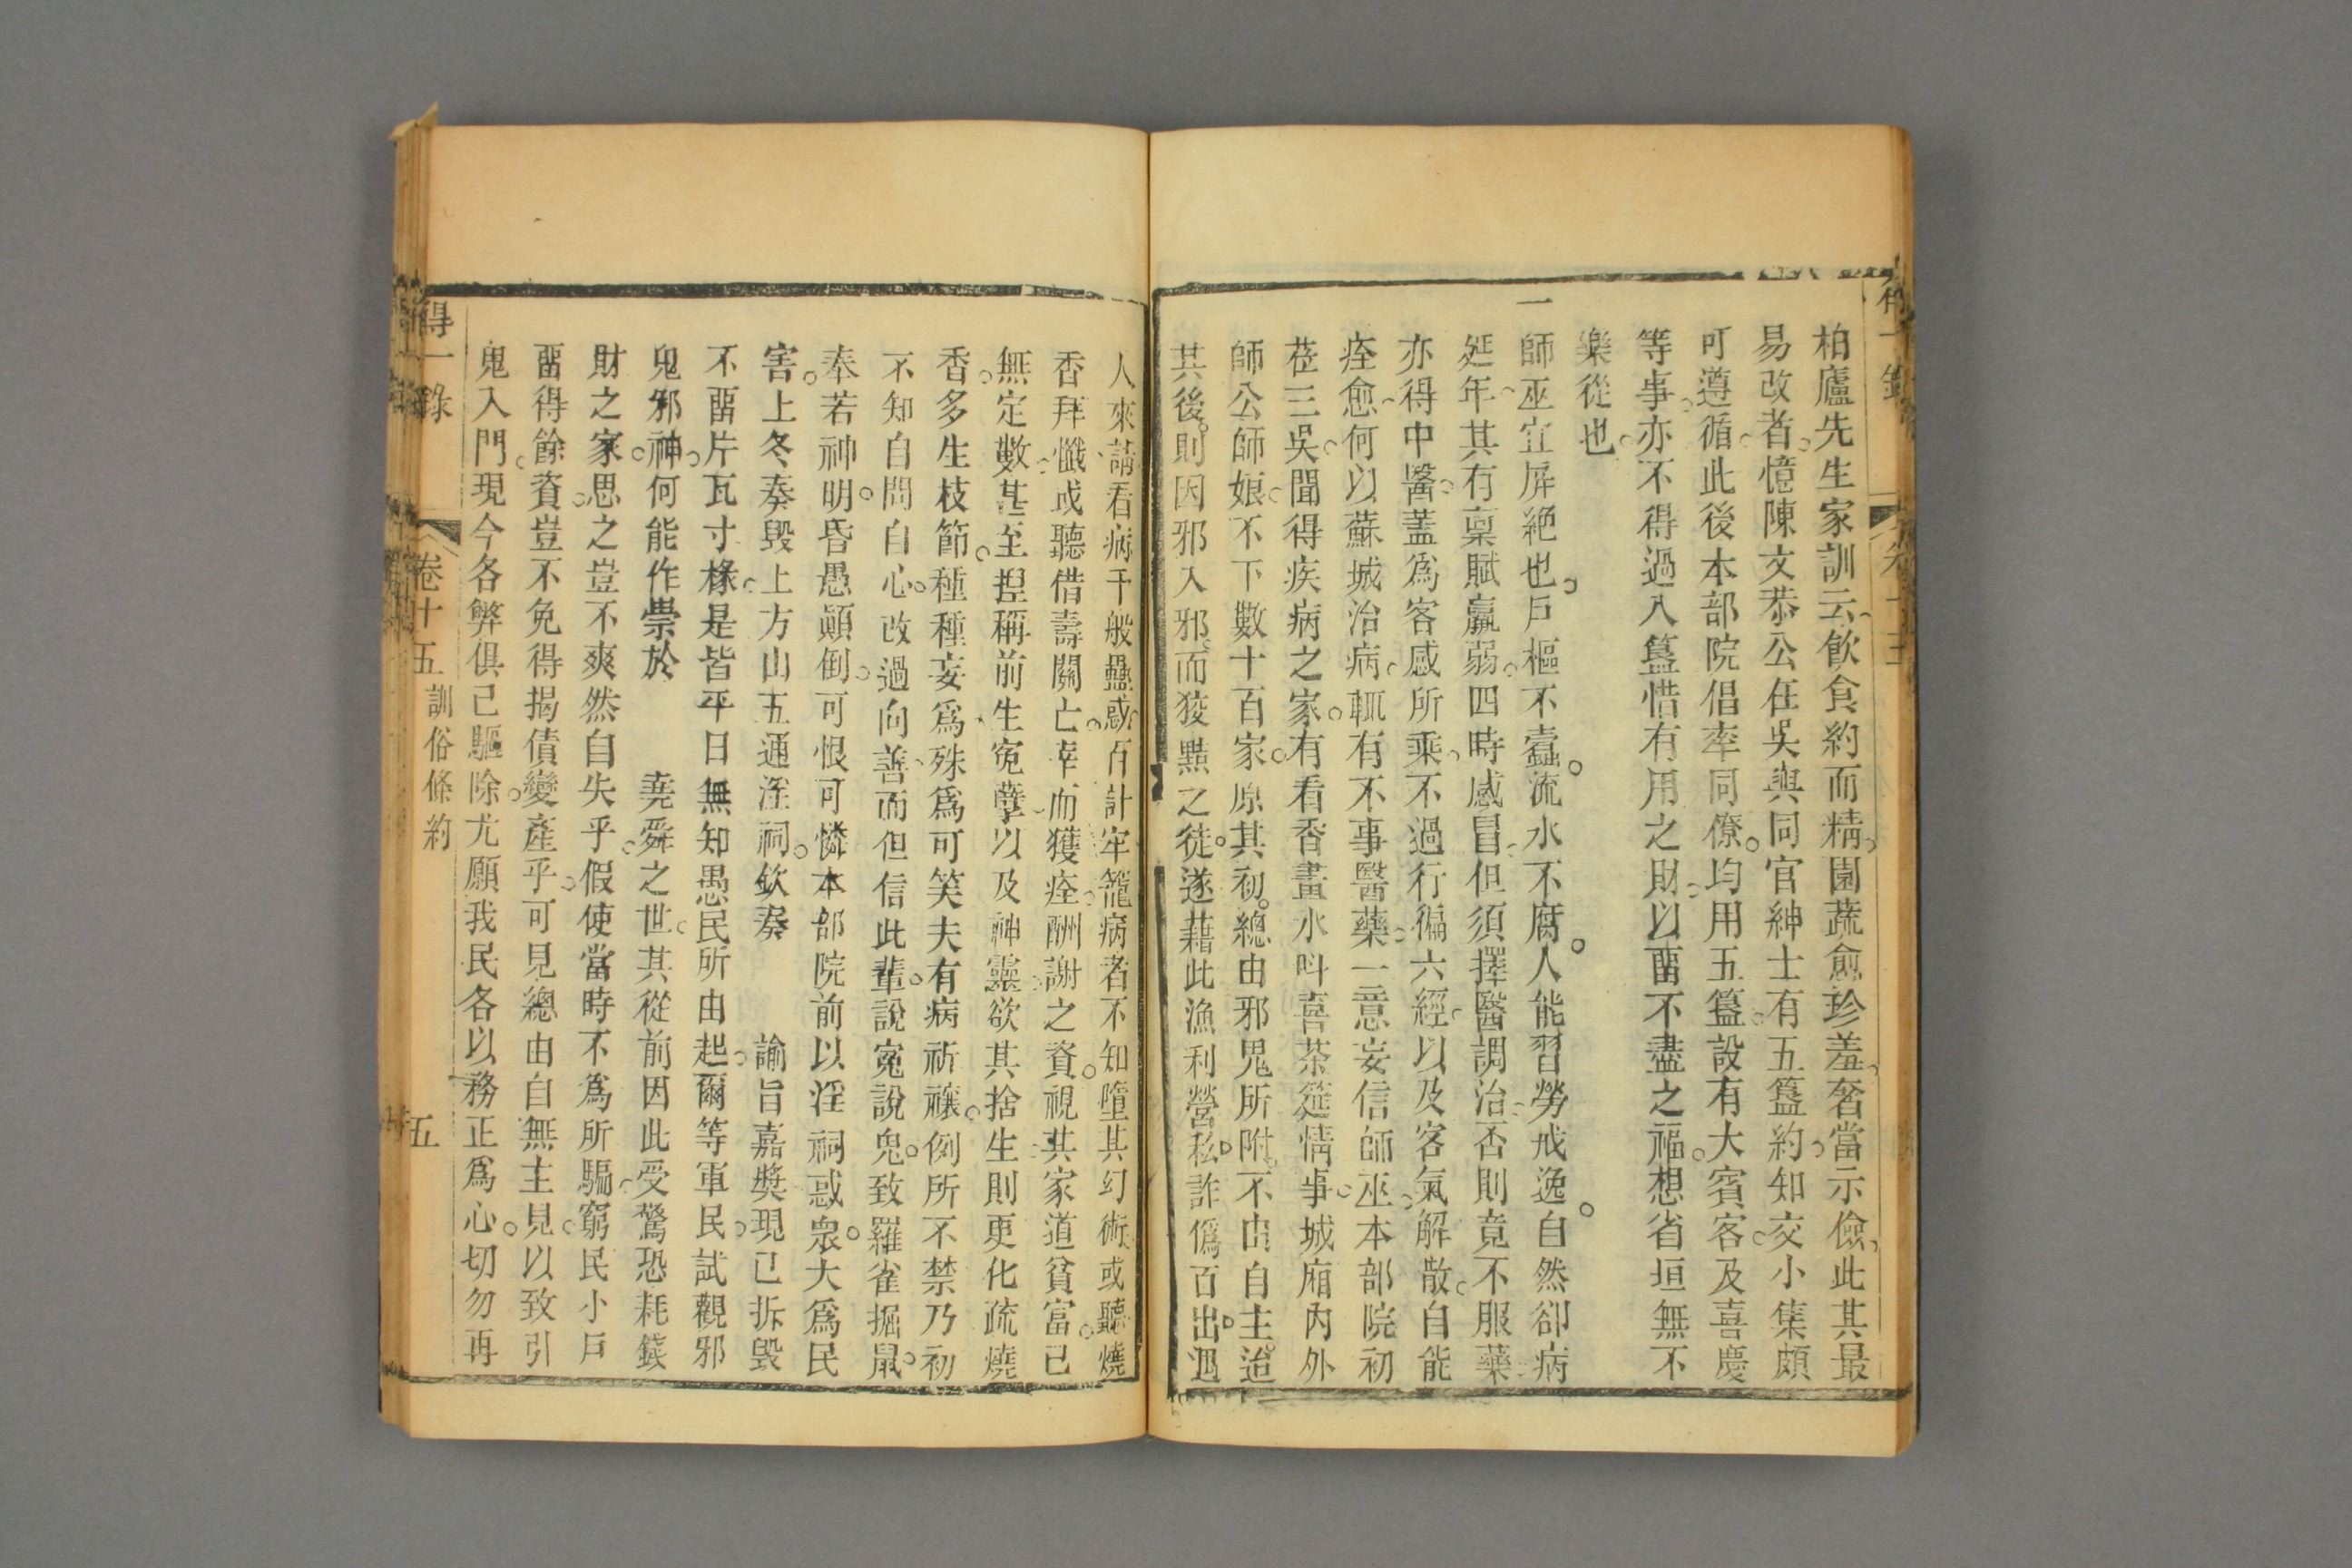 柏廬先生家訓云飲食約而精園蔬愈珍羞奢當示儉此其最
易改者憶陳文恭公在吳與同官紳士有五簋約知交小集頗
可遵循此後本部院倡率同僚均用五簋設有大賓客及喜慶
等事亦不得過八簋惜有用之財以畱不盡之福想省垣無不
樂從也
一師巫宜屏絕也戶樞不蠹流水不腐人能習勞戒逸自然卻病
延年其有稟賦羸弱四時感冒但須擇醫調治否則竟不服藥
亦得中醫蓋為客感所乘不過行徧六經以及客氣解散自能
痊愈何以蘇城治病輒有不事醫藥一意妄信師巫本部院初
莅三吳聞得疾病之家有看香畫水呌喜茶筵情事城廂內外
師公師娘不下數十百家原其初總由邪鬼所附不由自主迨
其後則因邪入邪而狡黠之徒遂藉此漁利營私詐偽百出遇
人來請看病千般蠱惑百計牢籠病者不知墮其幻術或聽燒
香拜懺或聽借壽關亡幸而獲痊酬謝之資視其家道貧富已
無定數甚至揑稱前生寃孽以及神靈欲其捨生則更化疏燒
香多生枝節種種妄為殊為可笑夫有病祈禳例所不禁乃初
不知自問自心改過向善而但信此輩說寃說鬼致羅雀掘鼠
奉若神明昏愚顚倒可恨可憐本部院前以淫祠惑衆大為民
害上冬奏毀上方山五通淫祠欽奏　諭旨嘉獎現已拆毀
不畱片瓦寸椽是皆平日無知愚民所由起爾等軍民試觀邪
鬼邪神何能作祟於　堯舜之世其從前因此受驚恐耗錢
財之家思之豈不爽然自失乎假使當時不為所騙窮民小戶
畱得餘資豈不免得揭債變產乎可見總由自無主見以致引
鬼入門現今各弊俱已驅除尤願我民各以務正為心切勿再
得一錄　卷十五　訓俗條約　五